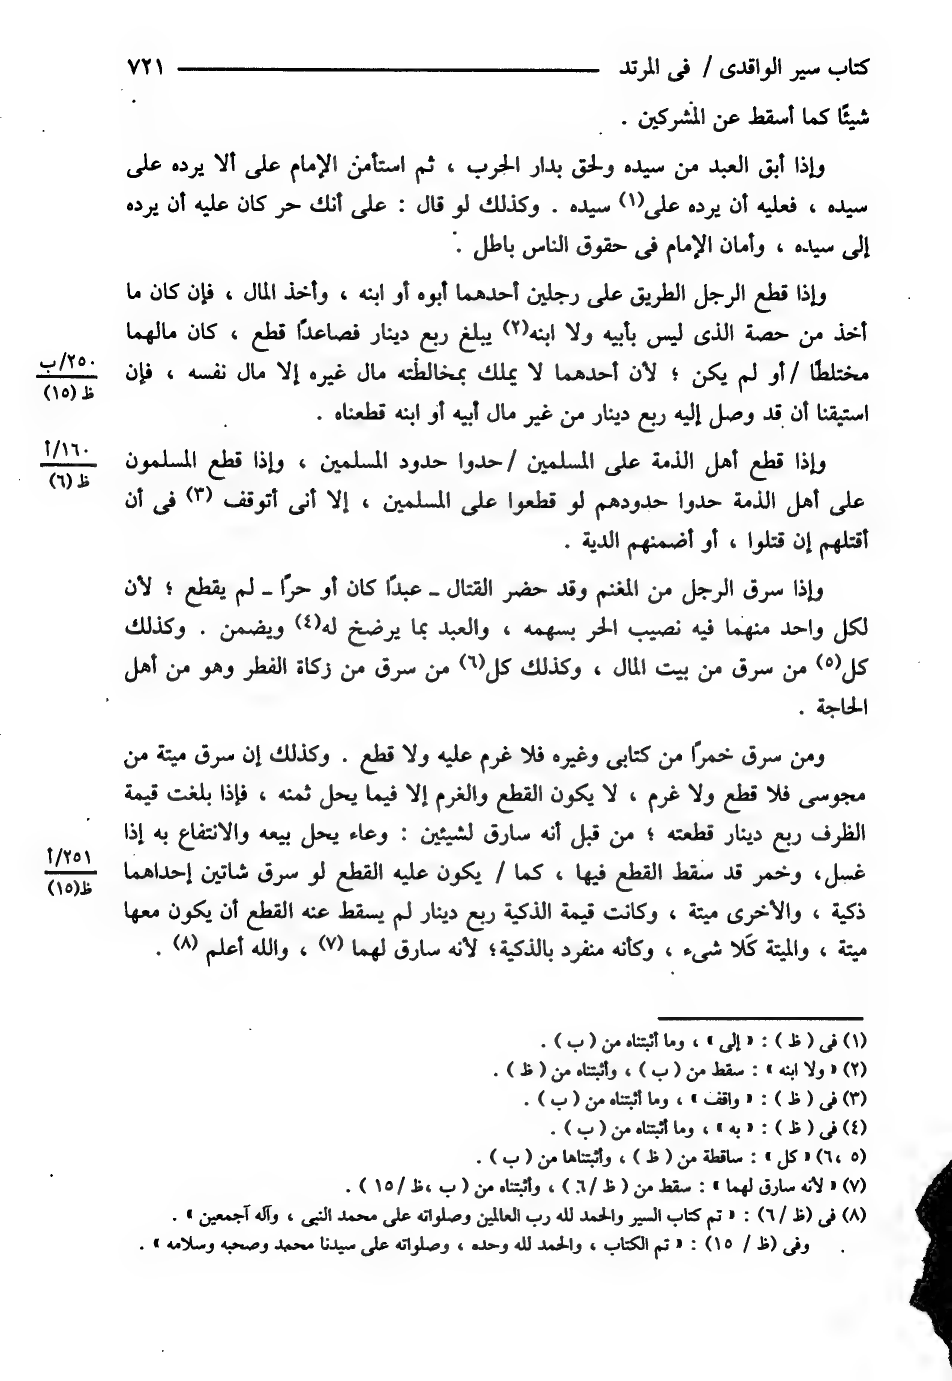 كتاب سير الواقدى / فى المرتد ــــــــــــــــــــ ٧٢١
شيئًا كما أسقط عن المشركين .
وإذا أبق العبد من سيده ولحق بدار الحرب ، ثم استأمن الإمام على ألا يرده على
سيده ، فعليه أن يرده على(١) سيده . وكذلك لو قال : على أنك حر كان عليه أن يرده
إلى سيده ، وأمان الإمام فى حقوق الناس باطل .
وإذا قطع الرجل الطريق على رجلين أحدهما أبوه أو ابنه ، وأخذ المال ، فإن كان ما
أخذ من حصة الذى ليس بأبيه ولا ابنه(٢) يبلغ ربع دينار فصاعدًا قطع ، كان مالهما
مختلطًا / أو لم يكن ؛ لأن أحدهما لا يملك بمخالطته مال غيره إلا مال نفسه ، فإن
٢٥٠/ب
ظ (١٥)
استيقنا أن قد وصل إليه ربع دينار من غير مال أبيه أو ابنه قطعناه .
وإذا قطع أهل الذمة على المسلمين / حدوا حدود المسلمين ، وإذا قطع المسلمون
١٦٠/أ
ظ (٦)
على أهل الذمة حدوا حدودهم لو قطعوا على المسلمين ، إلا أنى أتوقف (٣) فى أن
أقتلهم إن قتلوا ، أو أضمنهم الدية .
وإذا سرق الرجل من المغنم وقد حضر القتال ـ عبدًا كان أو حرًا ـ لم يقطع ؛ لأن
لكل واحد منهما فيه نصيب الحر بسهمه ، والعبد بما يرضخ له(٤) ويضمن . وكذلك
كل(٥) من سرق من بيت المال ، وكذلك كل(٦) من سرق من زكاة الفطر وهو من أهل
الحاجة .
ومن سرق خمرًا من كتابى وغيره فلا غرم عليه ولا قطع . وكذلك إن سرق ميتة من
مجوسى فلا قطع ولا غرم ، لا يكون القطع والغرم إلا فيما يحل ثمنه ، فإذا بلغت قيمة
الظرف ربع دينار قطعته ؛ من قبل أنه سارق لشيئين : وعاء يحل بيعه والانتفاع به إذا
غسل، وخمر قد سقط القطع فيها ، كما / يكون عليه القطع لو سرق شاتين إحداهما
٢٥١/أ
ظ(١٥)
ذكية ، والأخرى ميتة ، وكانت قيمة الذكية ربع دينار لم يسقط عنه القطع أن يكون معها
ميتة ، والميتة كَلا شىء ، وكأنه منفرد بالذكية؛ لأنه سارق لهما (٧) ، والله أعلم (٨) .
(١) فى ( ظ ) : « إلى » ، وما أثبتناه من ( ب ) .
(٢) « ولا ابنه » : سقط من ( ب ) ، وأثبتناه من ( ظ ) .
(٣) فى ( ظ ) : « واقف » ، وما أثبتناه من ( ب ) .
(٤) فى ( ظ ) : « به » ، وما أثبتناه من ( ب ) .
(٥ ،٦) « كل » : ساقطة من ( ظ ) ، وأثبتناها من ( ب ) .
(٧) « لأنه سارق لهما » : سقط من ( ظ /٦ ) ، وأثبتناه من ( ب ،ظ /١٥ ) .
(٨) فى (ظ /٦) : « تم كتاب السير والحمد لله رب العالمين وصلواته على محمد النبى ، وآله أجمعين » .
وفى (ظ / ١٥) : « تم الكتاب ، والحمد لله وحده ، وصلواته على سيدنا محمد وصحبه وسلامه » .